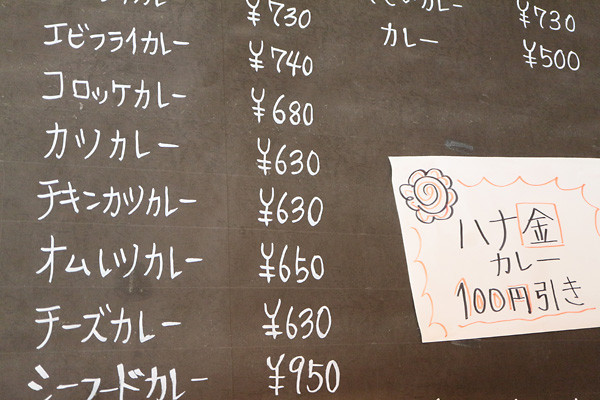 カレー ¥730
エビフライカレー ¥740
コロッケカレー ¥680
カツカレー ¥630
チキンカツカレー ¥630
オムレツカレー ¥650
チーズカレー ¥630
シーフードカレー ¥950
カレー ¥730
カレー ¥500
ハナ金
カレー
100円引き